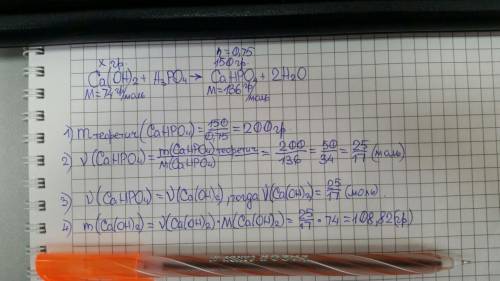 x гр. η=0,75
150гр.
Ca(OH)₂ + H₃PO₄ → CaHPO₄ + 2H₂O
M=74 гр/моль M=136 гр/моль
1) m теоретич (CaHPO₄) = 150/0,75 = 200 гр
2) ν(CaHPO₄) = m(CaHPO₄)теоретич/M(CaHPO₄) = 200/136 = 50/34 = 25/17 (моль)
3) ν(CaHPO₄) = ν(Ca(OH)₂, тогда ν(Ca(OH)₂) = 25/17 (моль)
4) m(Ca(OH)₂) = ν(Ca(OH)₂) · M(Ca(OH)₂) = 25/17 · 74 = 108,82 (гр)